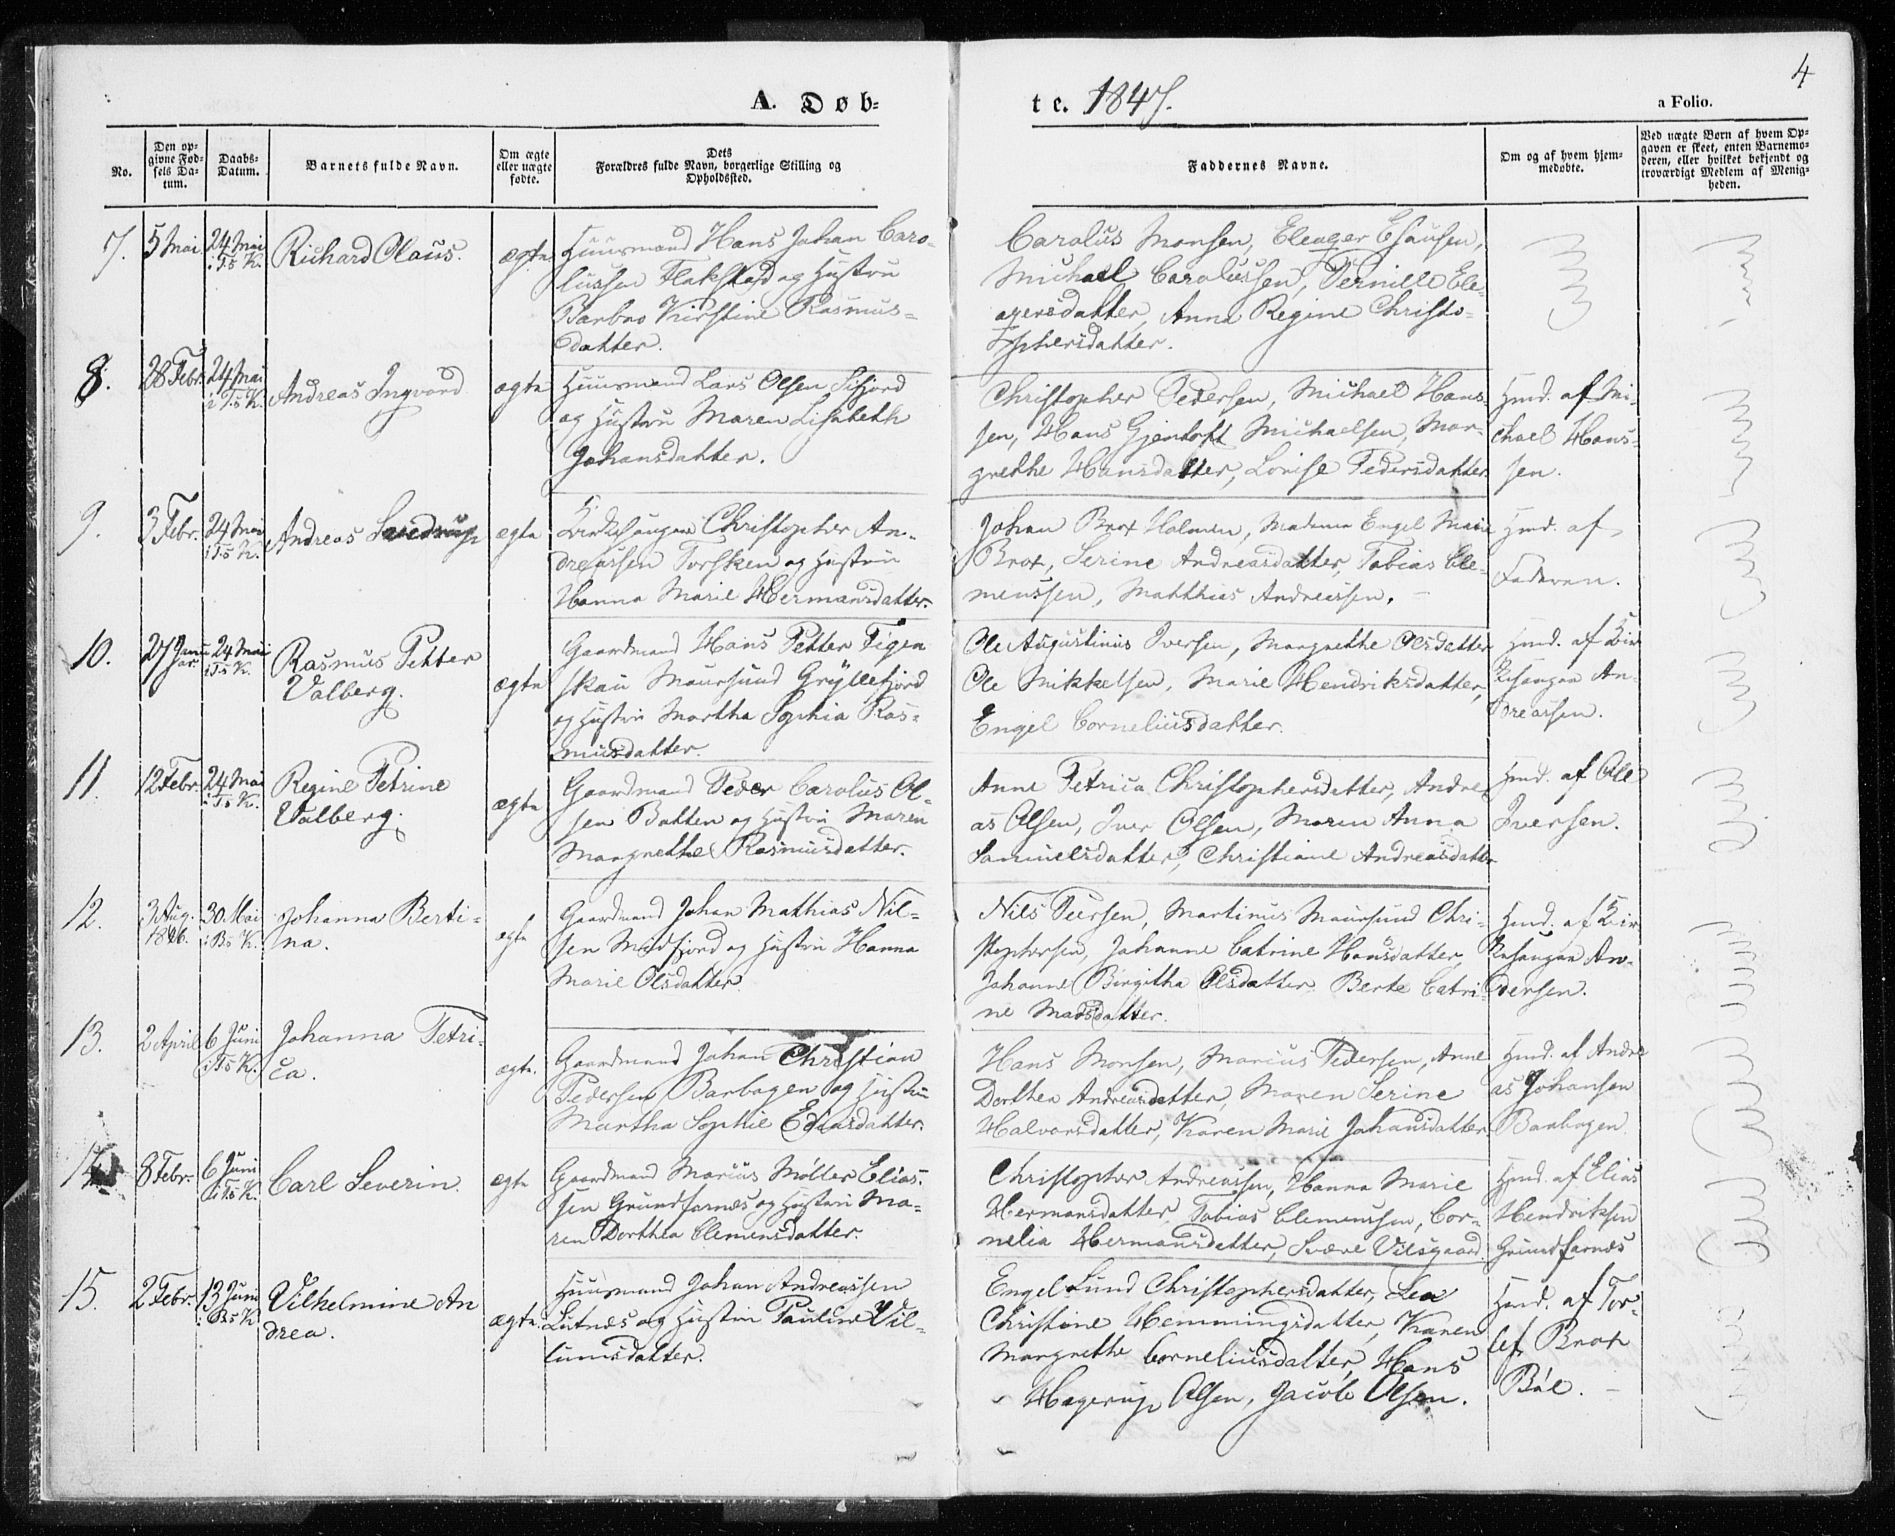 4
A. Døb-
te. 1847.
a Folio.
No.
Den op-
givne Fød-
sels Da-
tum.
Daabs-
Datum.
Barnets fulde Navn.
Om ægte
eller uægte
fødte.
Dets
Forældres fulde Navn, borgerlige Stilling og
Opholdssted.
Faddernes Navne.
Om og af hvem hjem-
medøbte.
Ved uægte Børn af hvem Op-
gaven er skeet, enten Barnemo-
deren, eller hvilket bekjendt og
troværdigt Medlem af Menig-
heden.
7.
5 Mai
24 Mai
i Ts K.
Richard Claus.
ægte
Huusmand Hans Johan Caro-
lussen Flakstad og Hustru
Barbro Kirstine Rasmus-
datter.
Carolus Monsen, Eleazer Esausen,
Michael Carolussen, Pernille Ele-
azersdatter, Anna Regine Christo-
phersdatter.
8.
28 Febr.
24 Mai
i Ts K.
Andreas Ingvard
ægte
Huusmand Lars Olsen Sifjord
og Hustru Maren Lisabeth
Johansdatter.
Christopher Pedersen, Michael Hans-
sen, Hans Gjentoft Michaelsen, Mar-
grethe Hansdatter, Lovise Pedersdatter
Hmd. af Mi-
chael Hans-
sen.
9.
3 Febr.
24 Mai
i Ts K.
Andreas
ægte
Kirkesanger Christopher An-
dreassen Torsken og Hustru
Hanna Marie Hermansdatter.
Johan Brox Holmen, Madame Engel Maria
Brox, Serine Andreasdatter, Tobias Cle-
menssen, Matthias Andreassen.
Hmd. af
Faderen.
10.
27 Janu
ar
24 Mai
i Ts K.
Rasmus Petter
Valberg.
ægte
Gaardmand Hans Petter Figen
skau Maursund Gryllefjord
og Hustru Martha Sophia Ras-
musdatter.
Ole Augustinus Iversen, Margrethe Olsdatter
Ole Mikkelsen, Marie Hendriksdatter,
Engel Corneliusdatter.
Hmd. af Kir
kesanger An-
dreassen.
11.
12 Febr.
24 Mai
i Ts K.
Regine Petrine
Valberg.
ægte
Gaardmand Peder Carolus Ol-
sen Batten og Hustru Maren
Margrethe Rasmusdatter.
Anne Petrica Christophersdatter, Andre
as Olsen, Iver Olsen, Maren Anna
Samuelsdatter, Christiane Andreasdatter
Hmd. af Ole
Iversen.
12.
3 Aug.
1846.
30 Mai
i Bs K.
Johanna Berti-
na.
ægte
Gaardmand Johan Mathias Nil-
sen Medfjord og Hustru Hanna
Marie Olsdatter.
Nils Peersen, Martinus Maursund Chri-
stophersen, Johanne Catrine Hansdatter,
Johanne Birgitha Olsdatter Berte Catri-
ne Madsdatter.
Hmd. af Kir
kesanger An-
dersen.
13.
2 April
6 Juni
i Ts K.
Johanna Petri-
ca.
ægte.
Gaardmand Johan Christian
Pedersen Barbogen og Hustru
Martha Sophie Ediasdatter.
Hans Monsen, Marius Pedersen, Anne
Dorthea Andreasdatter, Maren Serine
Halvorsdatter, Karen Marie Johansdatter
Hmd. af Andre
as Johansen
Barbogen
14.
8 Febr.
6 Juni
i Ts K.
Carl Severin.
ægte
Gaardmand Marius Møller Elias-
sen Grundfarnes og Hustru Ma-
ren Dorthea Clemensdatter.
Christopher Andreassen, Hanna Marie
Hermansdatter, Tobias Clemenssen, Cor-
nelia Hermansdatter, Vilsgaard
Hmd. af Elias
Hendriksen
Grundfarnæs
15.
2 Febr.
13 Juni
i Bs K.
Vilhelmine An
drea.
ægte.
Huusmand Johan Andreassen
Lutnæs og Hustru Pauline Vil-
lumsdatter.
Engel Lund Christophersdatter, Lea
Christine Hemmingsdatter, Karen
Margrethe Corneliusdatter, Hans
Hagerup Olsen, Jacob Olsen.
Hmd. af Tor-
lef Brox
Bål.